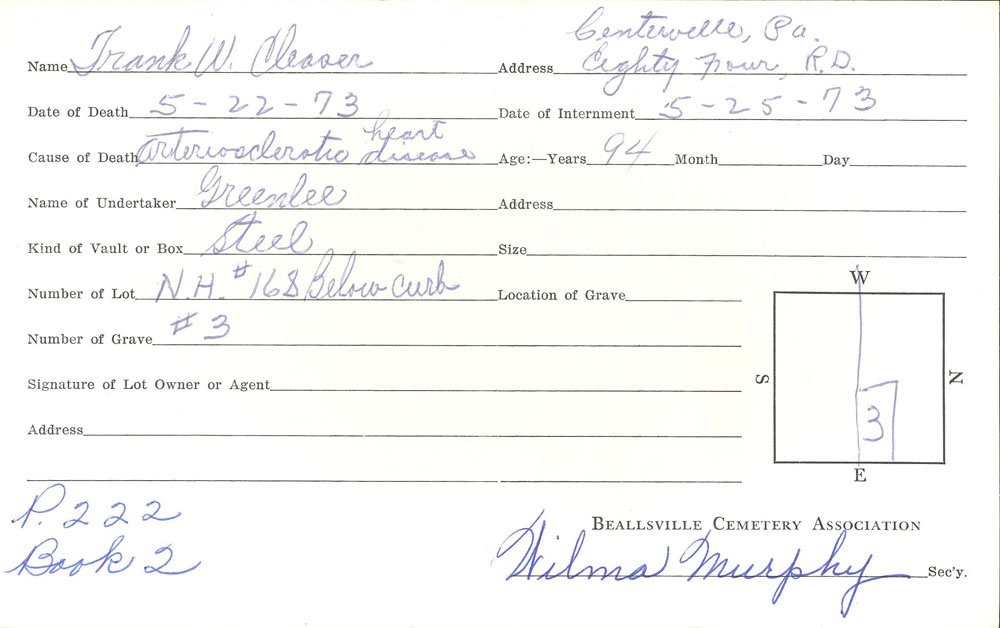 Centerville, Pa.
Name Frank W. Cleaver Address Eighty Four, R.D.
Date of Death 5-22-73 Date of Internment 5-25-73
Cause of Death arteriosclerotic heart disease Age:—Years 94 Month Day
Name of Undertaker Greenlee Address
Kind of Vault or Box Steel Size
Number of Lot N.H. #168 Below curb Location of Grave
Number of Grave #3
Signature of Lot Owner or Agent
Address
W
S N
3
E
P. 222
Book 2
BEALLSVILLE CEMETERY ASSOCIATION
Wilma Murphy Sec'y.